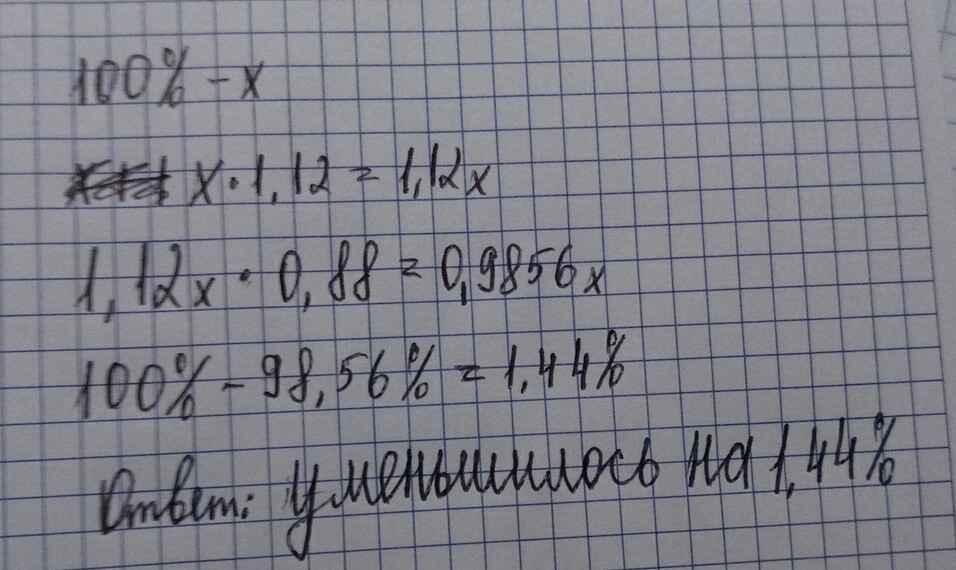 100% - x
x · 1,12 = 1,12x
1,12x · 0,88 = 0,9856x
100% - 98,56% = 1,44%
Ответ: уменьшилось на 1,44%